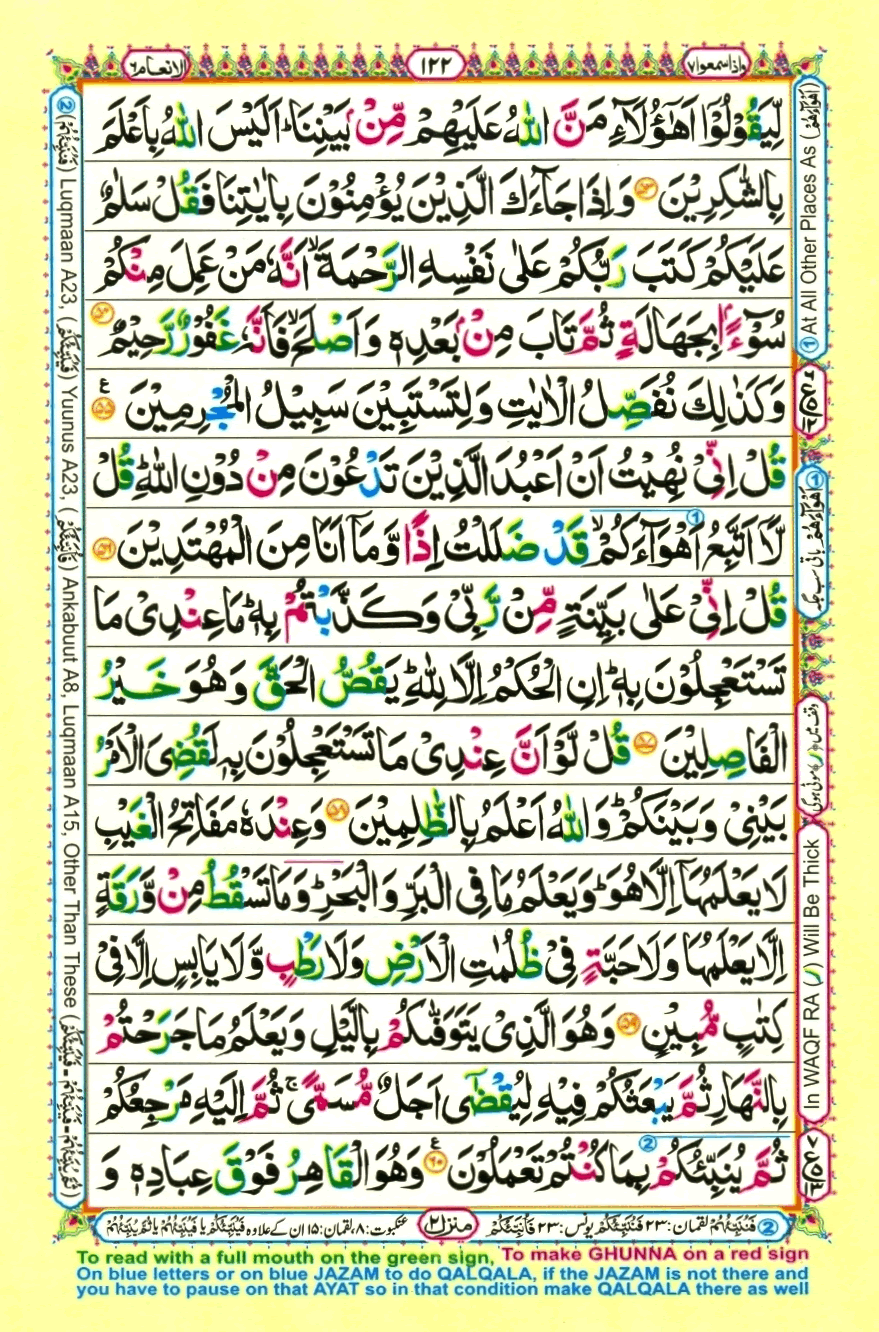 الانعام ٦
١٢٢
واذا سمعوا ٧
لِّيَقُوْلُوْۤا اَهٰۤؤُلَآءِ مَنَّ اللّٰهُ عَلَيْهِمْ مِّنْۢ بَيْنِنَا ؕ اَلَيْسَ اللّٰهُ بِاَعْلَمَ
بِالشّٰكِرِيْنَ ﴿٥٣﴾ وَاِذَا جَآءَكَ الَّذِيْنَ يُؤْمِنُوْنَ بِاٰيٰتِنَا فَقُلْ سَلٰمٌ
عَلَيْكُمْ كَتَبَ رَبُّكُمْ عَلٰى نَفْسِهِ الرَّحْمَةَ ۙ اَنَّهٗ مَنْ عَمِلَ مِنْكُمْ
سُوْٓءًۢا بِجَهَالَةٍ ثُمَّ تَابَ مِنْۢ بَعْدِهٖ وَاَصْلَحَ ۙ فَاَنَّهٗ غَفُوْرٌ رَّحِيْمٌ ﴿٥٤﴾
وَكَذٰلِكَ نُفَصِّلُ الْاٰيٰتِ وَلِتَسْتَبِيْنَ سَبِيْلُ الْمُجْرِمِيْنَ ﴿٥٥﴾ ع
قُلْ اِنِّىْ نُهِيْتُ اَنْ اَعْبُدَ الَّذِيْنَ تَدْعُوْنَ مِنْ دُوْنِ اللّٰهِ ؕ قُلْ
لَّاۤ اَتَّبِعُ اَهْوَآءَكُمْ ۙ ① قَدْ ضَلَلْتُ اِذًا وَّمَاۤ اَنَا مِنَ الْمُهْتَدِيْنَ ﴿٥٦﴾
قُلْ اِنِّىْ عَلٰى بَيِّنَةٍ مِّنْ رَّبِّىْ وَكَذَّبْتُمْ بِهٖ ؕ مَا عِنْدِىْ مَا
تَسْتَعْجِلُوْنَ بِهٖ ؕ اِنِ الْحُكْمُ اِلَّا لِلّٰهِ ؕ يَقُصُّ الْحَقَّ وَهُوَ خَيْرُ
الْفَاصِلِيْنَ ﴿٥٧﴾ قُلْ لَّوْ اَنَّ عِنْدِىْ مَا تَسْتَعْجِلُوْنَ بِهٖ لَقُضِىَ الْاَمْرُ
بَيْنِىْ وَبَيْنَكُمْ ؕ وَاللّٰهُ اَعْلَمُ بِالظّٰلِمِيْنَ ﴿٥٨﴾ وَعِنْدَهٗ مَفَاتِحُ الْغَيْبِ
لَا يَعْلَمُهَاۤ اِلَّا هُوَ ؕ وَيَعْلَمُ مَا فِى الْبَرِّ وَالْبَحْرِ ؕ وَمَا تَسْقُطُ مِنْ وَّرَقَةٍ
اِلَّا يَعْلَمُهَا وَلَا حَبَّةٍ فِىْ ظُلُمٰتِ الْاَرْضِ وَلَا رَطْبٍ وَّلَا يَابِسٍ اِلَّا فِىْ
كِتٰبٍ مُّبِيْنٍ ﴿٥٩﴾ وَهُوَ الَّذِىْ يَتَوَفّٰٮكُمْ بِالَّيْلِ وَيَعْلَمُ مَا جَرَحْتُمْ
بِالنَّهَارِ ثُمَّ يَبْعَثُكُمْ فِيْهِ لِيُقْضٰٓى اَجَلٌ مُّسَمًّى ۚ ثُمَّ اِلَيْهِ مَرْجِعُكُمْ
ثُمَّ يُنَبِّئُكُمْ ② بِمَا كُنْتُمْ تَعْمَلُوْنَ ﴿٦٠﴾ ع وَهُوَ الْقَاهِرُ فَوْقَ عِبَادِهٖ وَ
① At All Other Places As (اَهْوَآءَهُمْ)
① اَهْوَآءَهُمْ باقی سب جگہ
وقف میں (ر) موٹی ہوگی
In WAQF RA (ر) Will Be Thick
② (فَنُنَبِّئُهُمْ) Luqmaan A23, (فَنُنَبِّئُكُمْ) Yuunus A23, (فَاُنَبِّئُكُمْ) Ankabuut A8, Luqmaan A15, Other Than These
② فَنُنَبِّئُهُمْ لقمان: ٢٣ فَنُنَبِّئُكُمْ یونس: ٢٣ فَاُنَبِّئُكُمْ
منزل ٢
عنکبوت: ٨، لقمان: ١٥ ان کے علاوہ
To read with a full mouth on the green sign, To make GHUNNA on a red sign
On blue letters or on blue JAZAM to do QALQALA, if the JAZAM is not there and
you have to pause on that AYAT so in that condition make QALQALA there as well